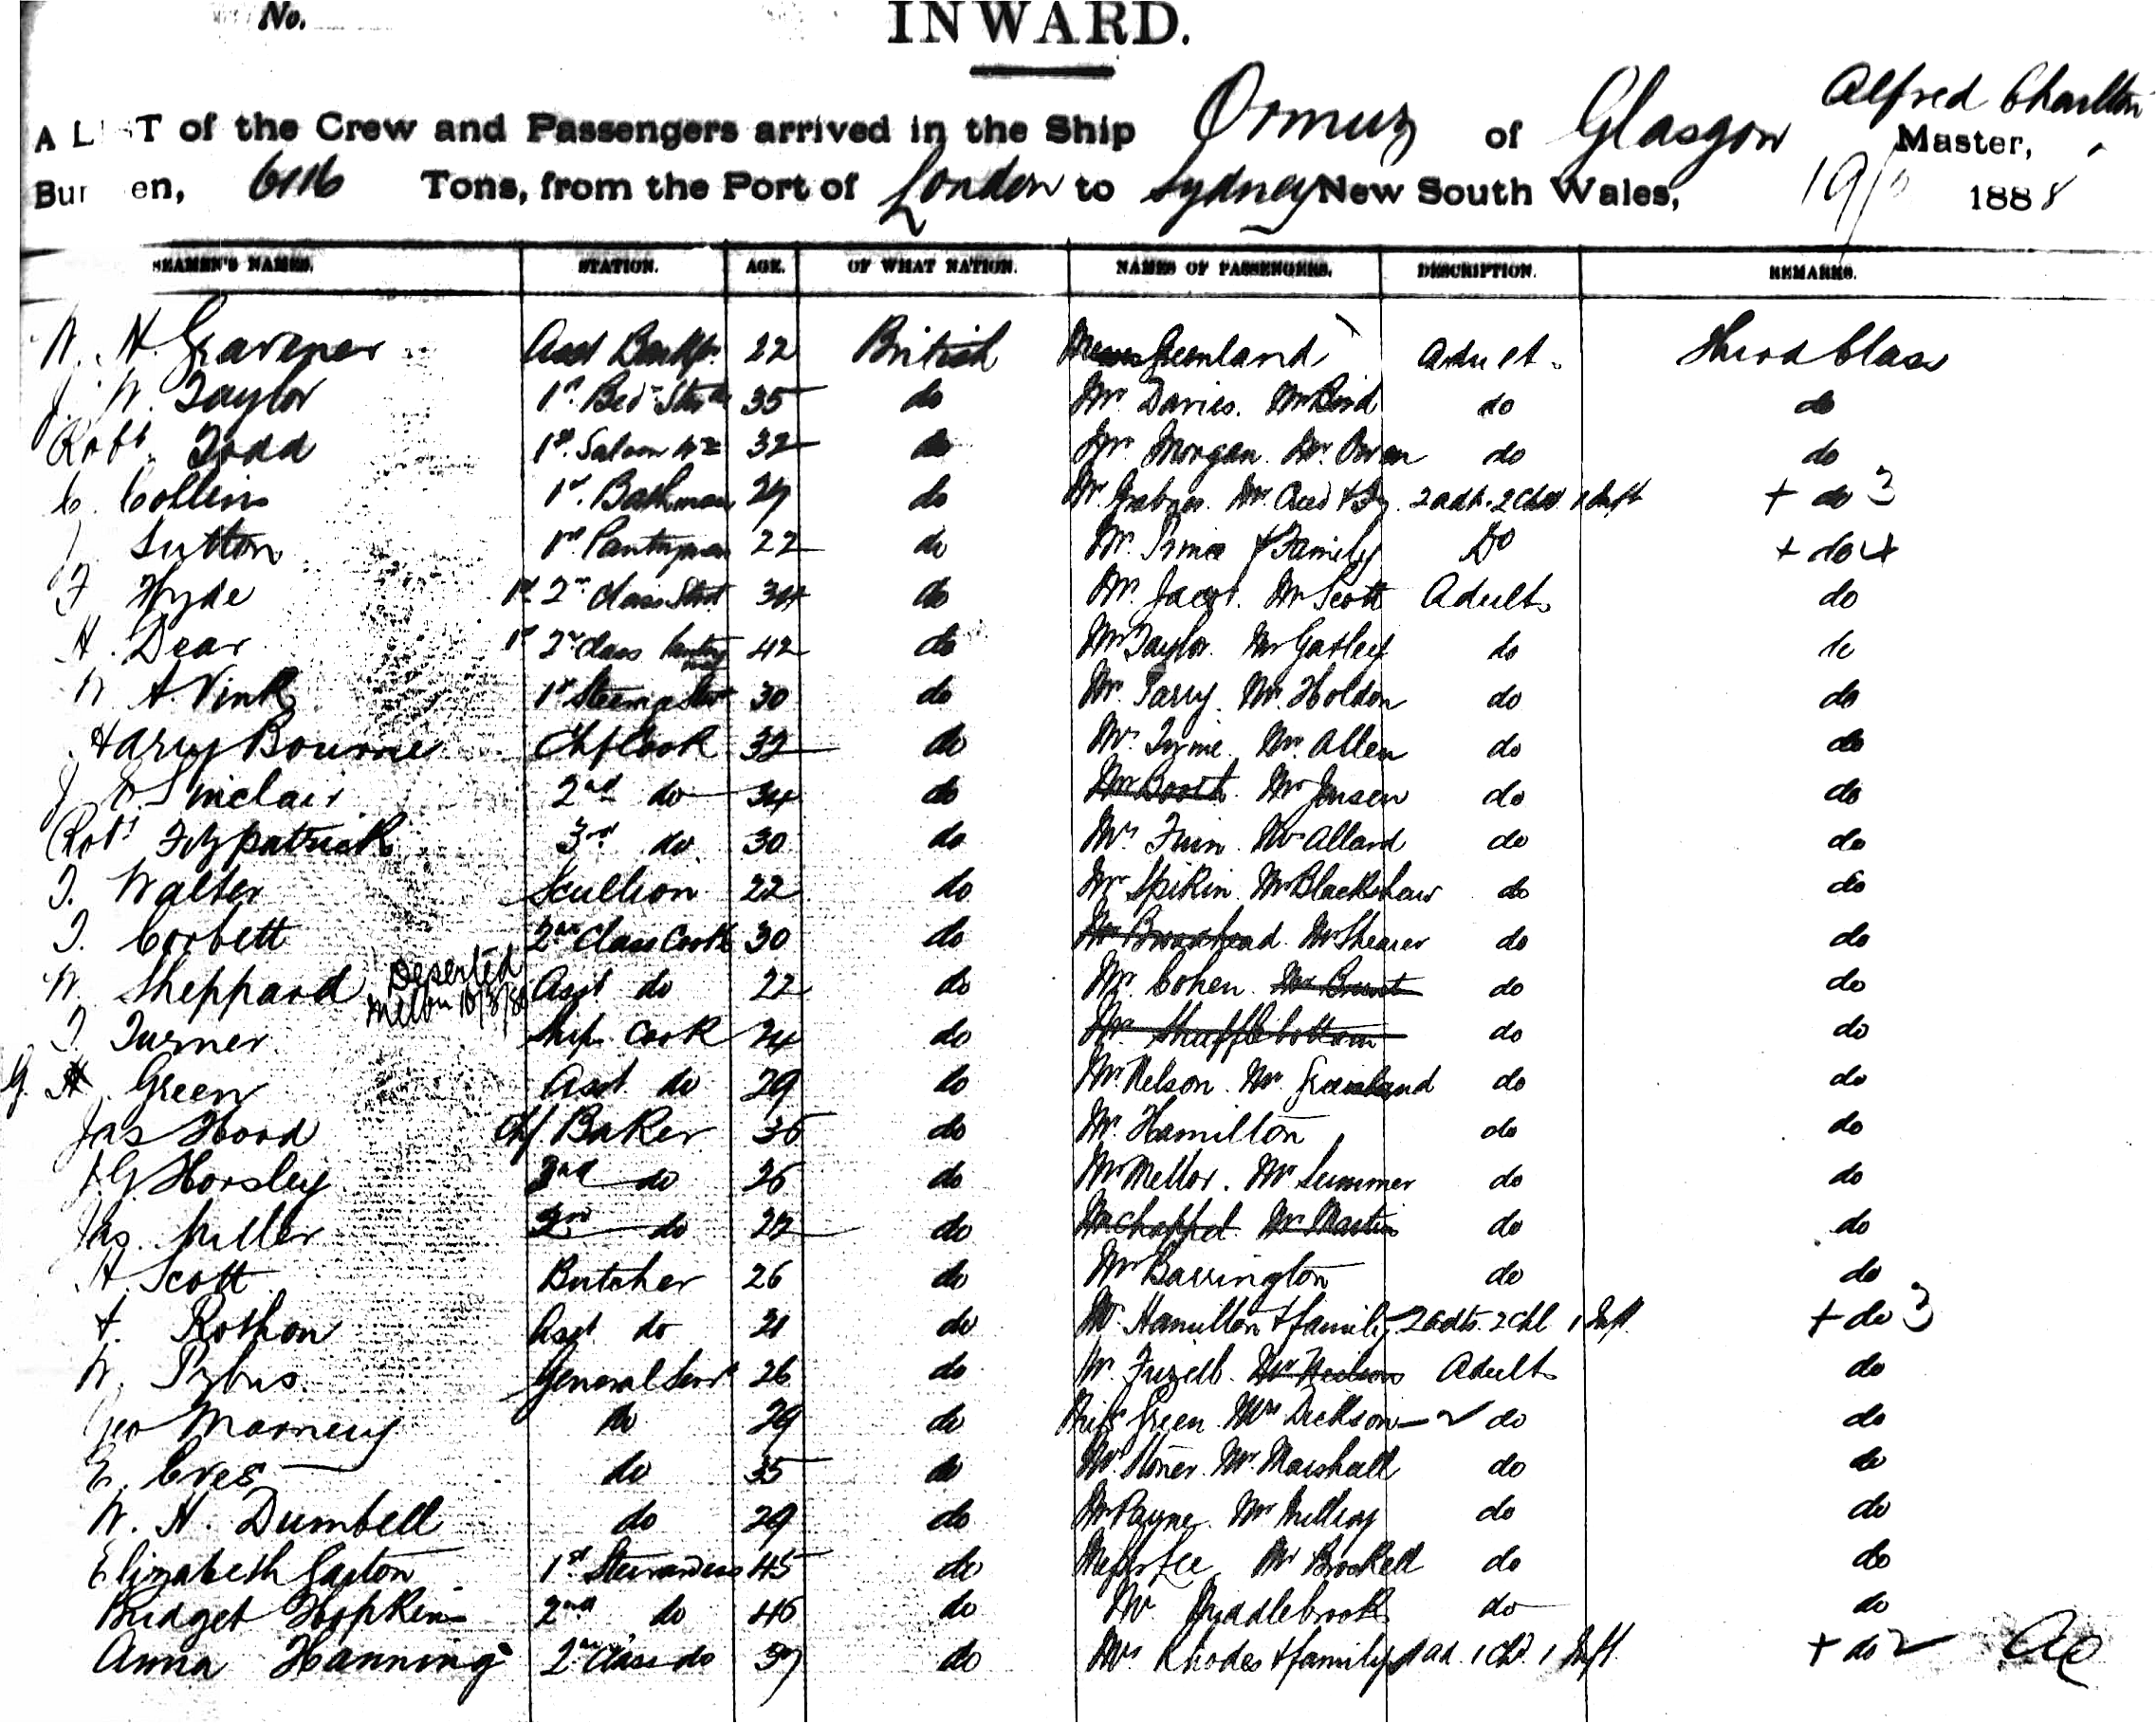 No.
INWARD.
Alfred Charlton
A LIST of the Crew and Passengers arrived in the Ship Ormuz of Glasgow Master,
Burden, 6116 Tons, from the Port of London to Sydney New South Wales, 1888
SEAMEN'S NAMES. STATION. AGE. OF WHAT NATION. NAMES OF PASSENGERS. DESCRIPTION. REMARKS.
W. H. 22 British Greenland Adult Third Class
J. W. Taylor 1st Bed Stwd 35 do Mr Davies. Mr Bird do do
Robt. Todd 1st Saloon 32 do Mr Morgan. Mr Owen do do
C. Collins 1st Bathman 29 do Mr. Mr. 2 adt. 2 Chd 1 Inft + do 3
J Sutton 1st Pantryman 22 do Mr. & Family Do + do 4
F Hyde 1st 2nd Class Stwd 34 do Mr. Mr Scott Adults do
H. Dear 1st 2nd Class Pantryman 42 do Mr Taylor. Mr Gatley do do
W A. Vink 1st Steerage Stwd 30 do Mr. Parry. Mr. Holdon do do
Harry Bourne Chf Cook 32 do Mr. Mr. Allen do do
J Sinclair 2nd do 34 do Mr Booth. Mr Jensen do do
Robt Fitzpatrick 3rd do 30 do Mr Allard do do
T. Walter Scullion 22 do Mr Spikin. Mr Blackshaw do do
T. Corbett 2nd Class Cook 30 do Mr Broadhead. Mr Shearer do do
W. Sheppard Deserted Melbn 10/3/88 Asst do 22 do Mr. Cohen. do do
T. Turner Ships Cook 24 do Mr Shufflebottom do do
G. H. Green Asst do 29 do Mr Nelson. Mr. do do
Jas Hood Chf Baker 36 do Mr. Hamilton do do
Horsley 2nd do 26 do Mr Mellor. Mr Summer do do
Jas. Miller 3rd do 22 do Mr Chappel Mr Martin do do
A. Scott Butcher 26 do Mr Barrington do do
Rothon Asst do 21 do Mr. Hamilton & family 2 adts. 2 Chl 1 Inft. + do 3
W. Pybus General Servt 26 do Mr. Mr Adults do
Geo Marney do 29 do Miss Green. Mrs Dickson do do
E. Cves do 35 do Mr. Stoner. Mr. Marshall do do
W. H. Dumbell do 29 do Mr Payne. Mr Millroy do do
Elizabeth Garton 1st Stewardess 45 do Lee Mr Brockell do do
Bridget Hopkins 2nd do 46 do Mr Middlebrook do do
Anna Hanning 2nd Class do 39 do Mrs Rhodes & family 1 ad. 1 Chd. 1 Inft. + do 2